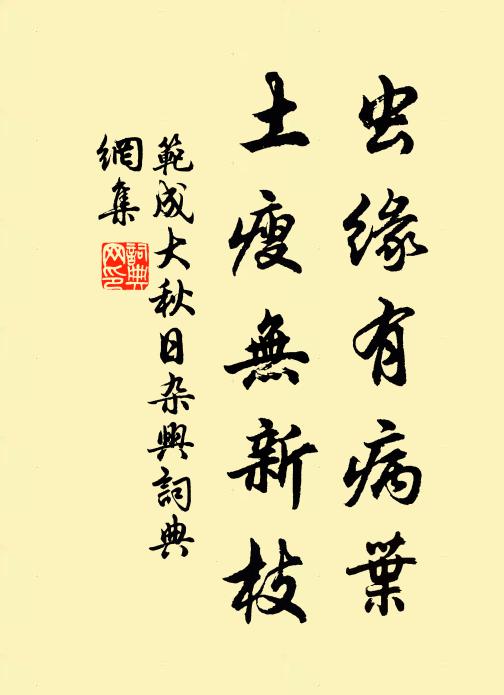 虫缘有病葉
土瘦無新枝
範成大秋日杂興詞典
網集
詞典
网印